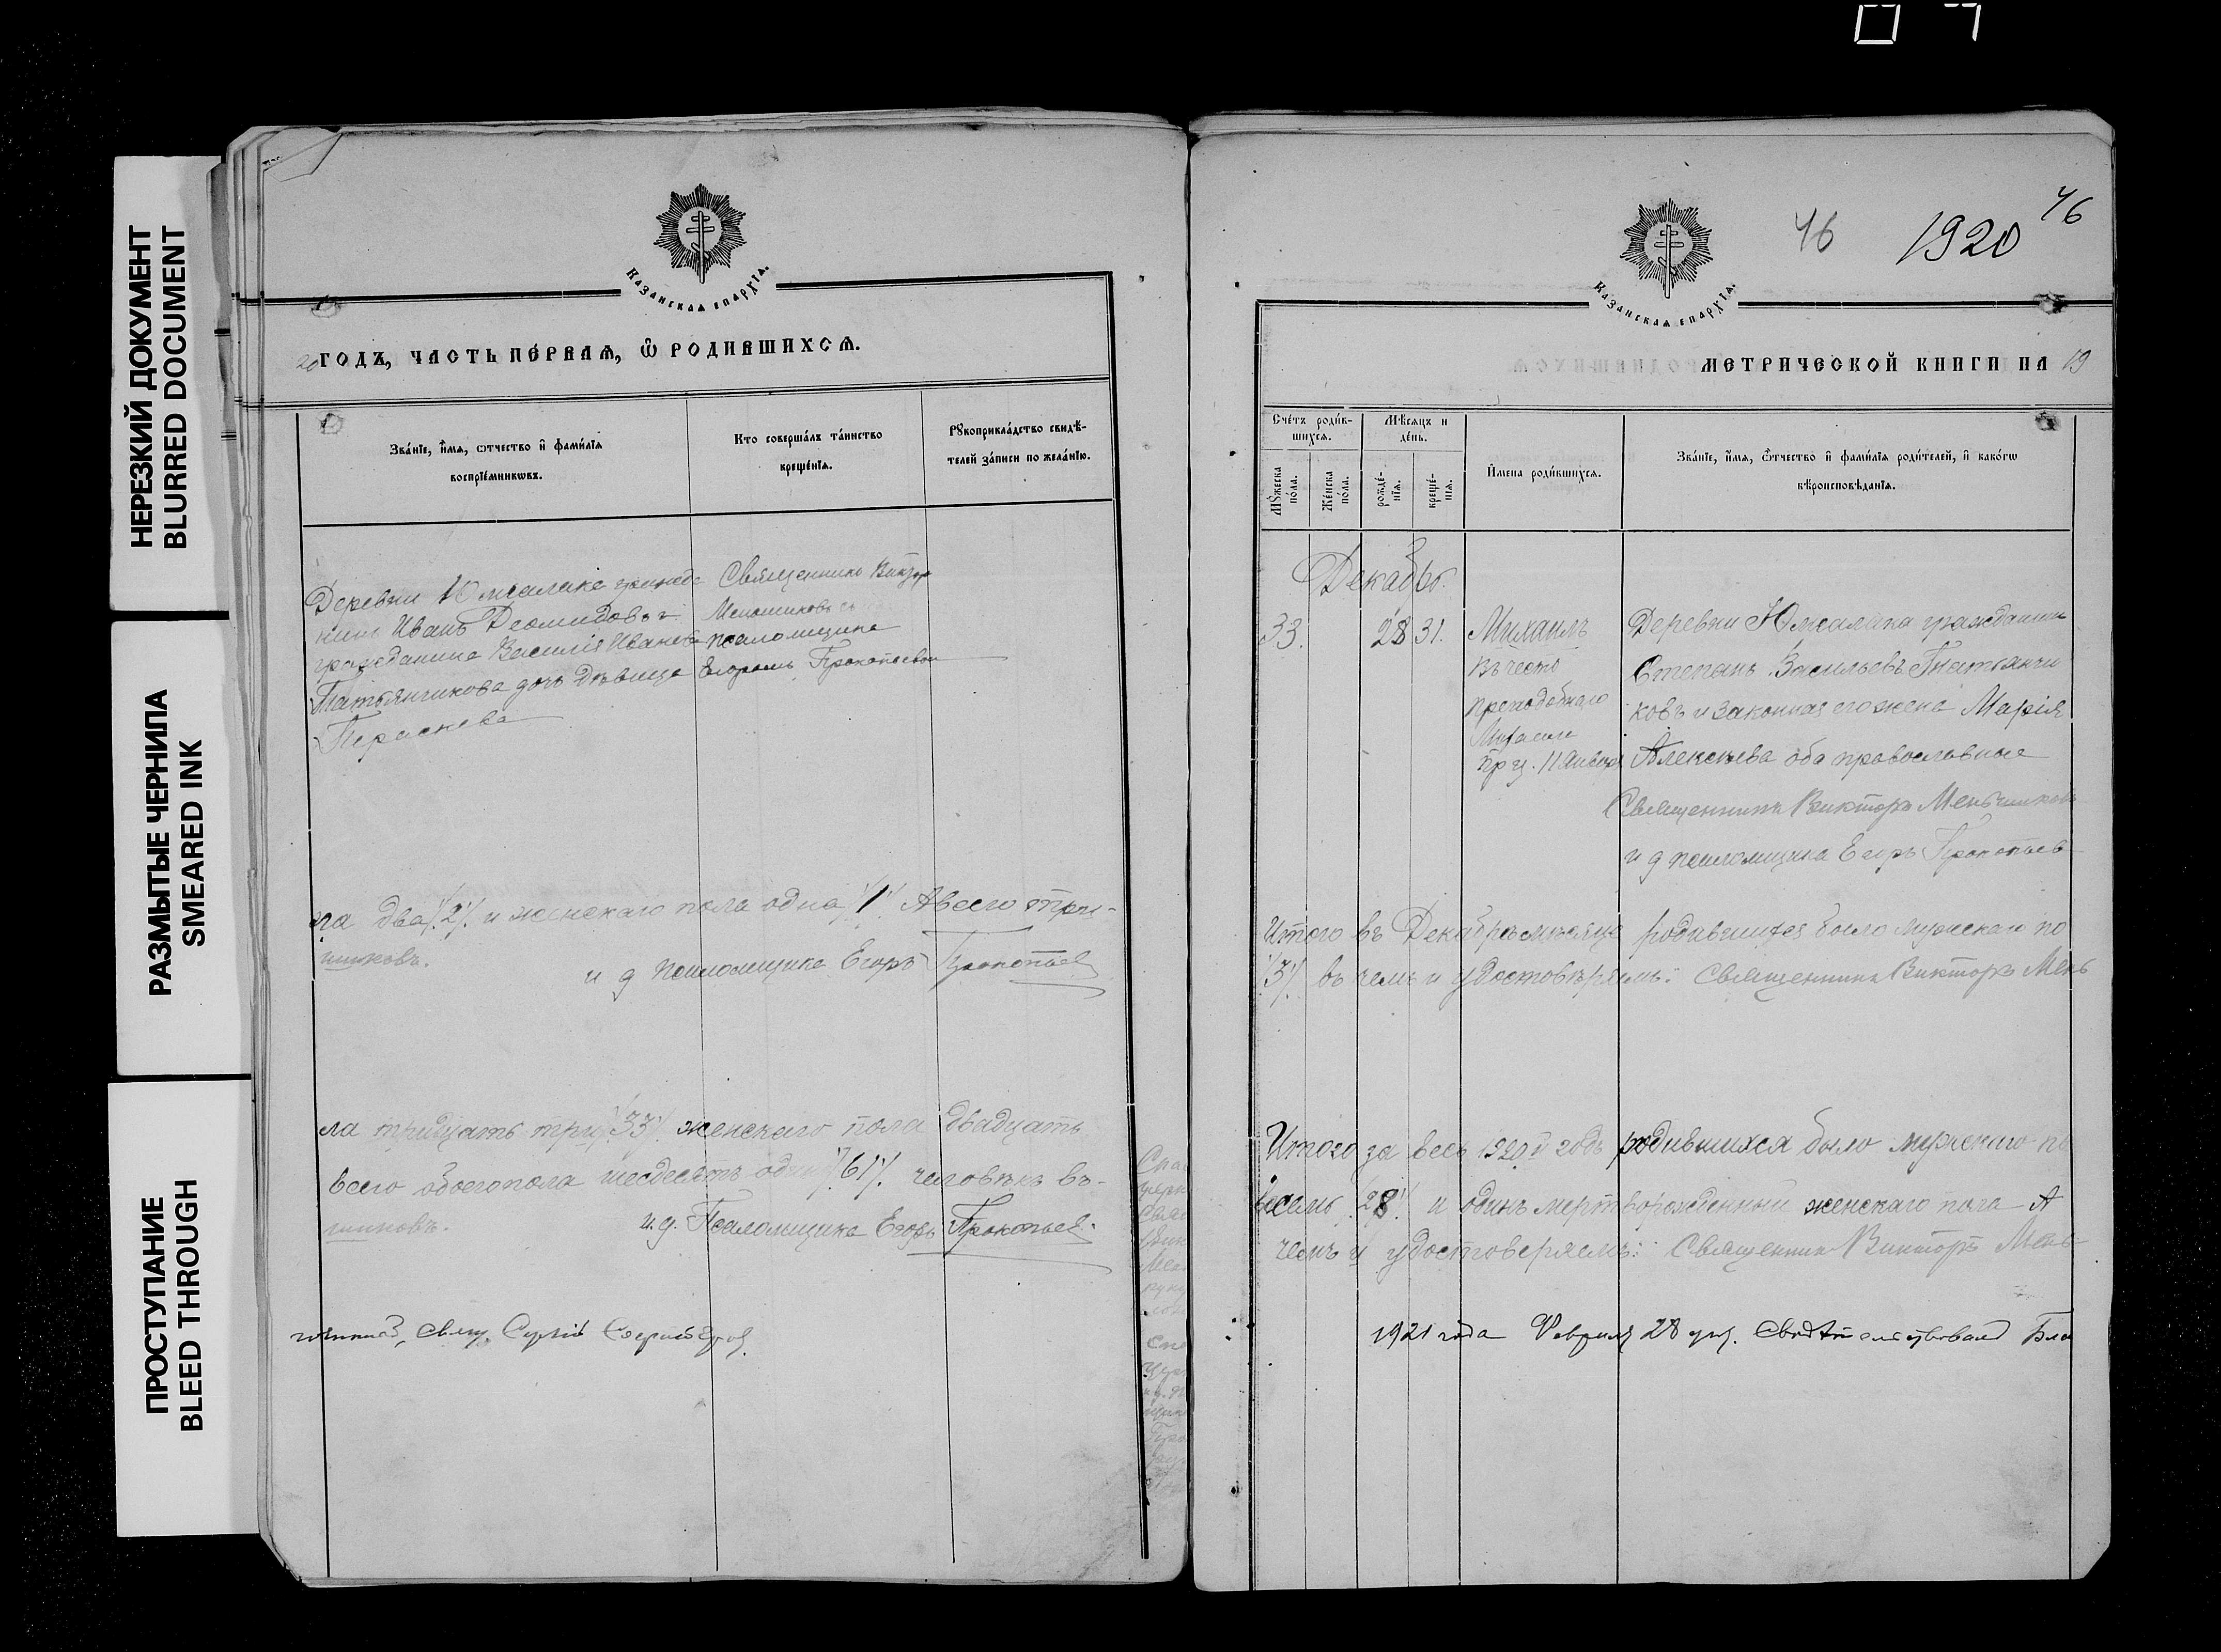 НЕРЕЗКИЙ ДОКУМЕНТ
BLURRED DOCUMENT
РАЗМЫТЫЕ ЧЕРНИЛА
SMEARED INK
ПРОСТУПАНИЕ
BLEED THROUGH
Казанская епархїя.
20 годъ, часть пе́рвая, ѡ҆ родившихся.
Зва́нїе, и҆́мя, ѻтчество и҆ фами́лїя
воспрїе́мникѡвъ.
Кто соверша́лъ та́инство
креще́нїя.
Рꙋкоприкла́дство свидѣ́-
телей за́писи по жела́нїю.
Деревни Юмралака гражда
нинъ Иванъ Деомидовъ и
гражданина Василія Иванова
Татьянчикова дочь дѣвица
Священникъ Викторъ
Меньшиковъ съ
псаломщикъ
Егоромъ Прокопьевым
ла два /2/. и женскаго пола одна /1/ А всего три-
шиковъ.
и д псаломщика Егоръ Прокопьев
ла тридцать три /33/. женскаго пола двадцать
всего обоего пола шесдесятъ один /61/. человѣкъ въ-
шиковъ.
и.д. Псаломщика Егоръ Прокопьев.
свящ. Сергій
46
1920
46
Казанская епархїя.
метрической книги на 19
Сче́тъ роди́в-
шихся.
Мѣ́сяцъ и
де́нь.
Мꙋ́жеска
по́ла.
Же́нска
по́ла.
рожде́-
нїя.
креще́-
нїя.
И҆мена роди́вшихся.
Зва́нїе, и҆́мя, ѻ҆́тчество и҆ фами́лїя роди́телей, и҆ како́гѡ
вѣроисповѣ́данїя.
Декабрь.
33.
28
31.
Михаилъ
въ честь
преподобнаго
Михаила
пр ц. 11 Января
Деревни Юмралака гражданинъ
Степанъ Васильевъ Татьянчи
ковъ и законная его жена Марія
Алексѣева оба православные
Священникъ Викторъ Меньшиковъ
и д псаломщика Егоръ Прокопьев
Итого въ Декабрѣ мѣсяцѣ родившихся было мужскаго по
/3/. въ чемъ и удостовѣряемъ: Священникъ Викторъ Мень
Итого за весь 1920й годъ родившихся было мужскаго по
восемь /28/. и одинъ мертворожденный женскаго пола А
чемъ и удостоверяемъ: Священникъ Викторъ Мень-
1921 года Февраля 28 дня. Свидѣтельствовалъ Бла